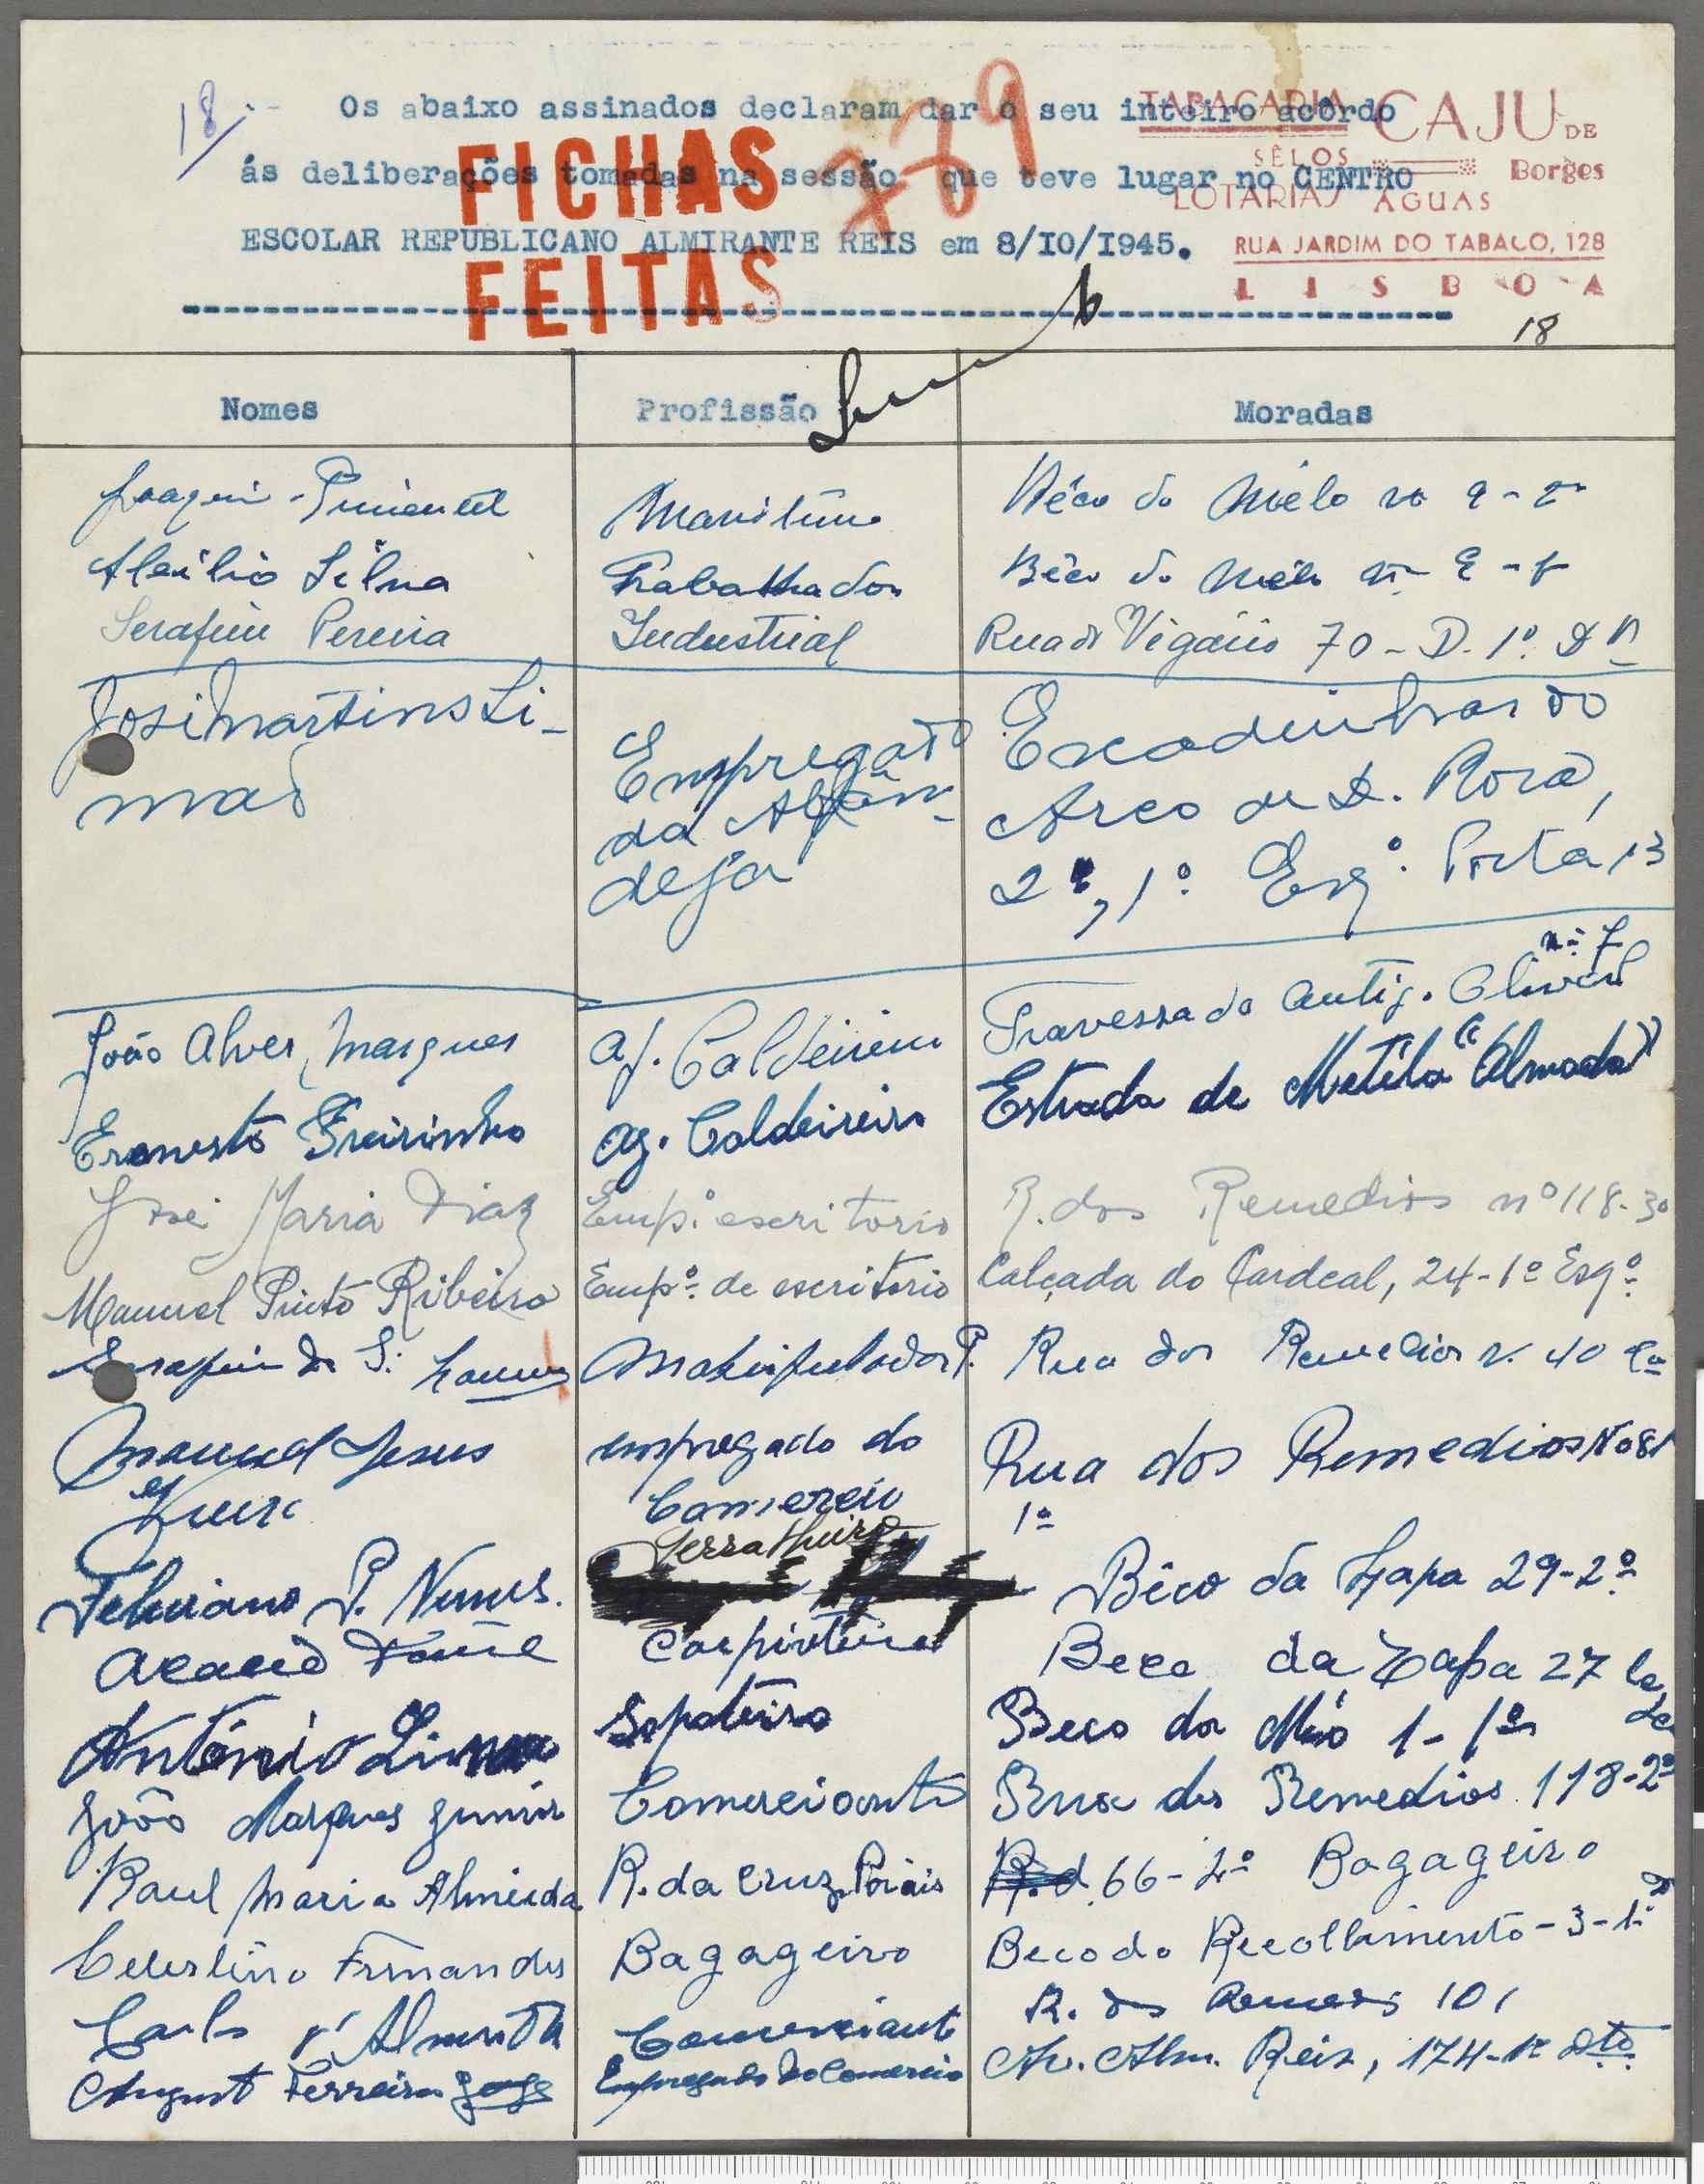 18
Os abaixo assinados declaram dar o seu inteiro acôrdo
ás deliberações tomadas na sessão que teve lugar no CENTRO
ESCOLAR REPUBLICANO ALMIRANTE REIS em 8/IO/I945.
FICHAS
FEITAS
279
TABACARIA CAJU DE
SÊLOS Borges
LOTARIAS AGUAS
RUA JARDIM DO TABACO, 128
LISBOA
18
Nomes Profissão Moradas
Joaquim Pimentel Maritimo Bêco do Mélo nº 9 - 2º
Silva Trabalhador Bêco do Mélo nº 9
Serafim Pereira Industrial Rua do Vigário 70 - D. 1º
José Martins Li-
mas
Empregado
da Alfân-
dega
Escadinhas do
Arco de D. Rosa,
2º, 1º Esqº. Porta, 13
nº 7
João Alves Marques aj. Caldeireiro Travessa do Olival
Ernesto Freirinho aj. Caldeireiro Estrada de Mutéla "(Almada)"
José Maria Diaz Emp.º escritorio R. dos Remedios nº 118-3º
Manuel Pinto Ribeiro Empº. de escritorio Calçada do Cardeal, 24-1º Esqº.
Serafim de S. Manipulador P. Rua dos Remedios n. 40
Manuel Jesus empregado do Rua dos Remedios Nº 81
Comercio 1º
Feliciano P. Nunes. Serralheiro Bêco da Lapa 29-2º
Carpinteiro Beco da Lapa 27
António Lima Sapateiro Beco do Mió 1-1º
João Marques Junior Comerciante Rua dos Remedios 118-2º
Raul Maria Almeida R. da Cruz Poiais R. d 66-2º Bagageiro
Celestino Fernandes Bagageiro Beco do Recolhimento-3-1º
Carlos d'Almeida Comerciante R. dos Remedios 101
August Ferreira Jorge Empregado do Comercio Av. Alm. Reis, 174-1º Dtº.